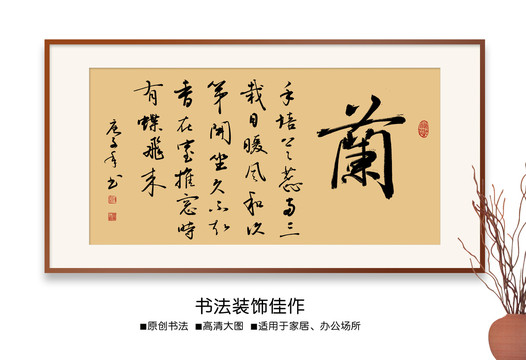 蘭
手培兰蕊两三
栽日暖風和次
第開坐久不知
香在室推窓時
有蝶飛来
书法装饰佳作
■原创书法 ■高清大图 ■适用于家居、办公场所